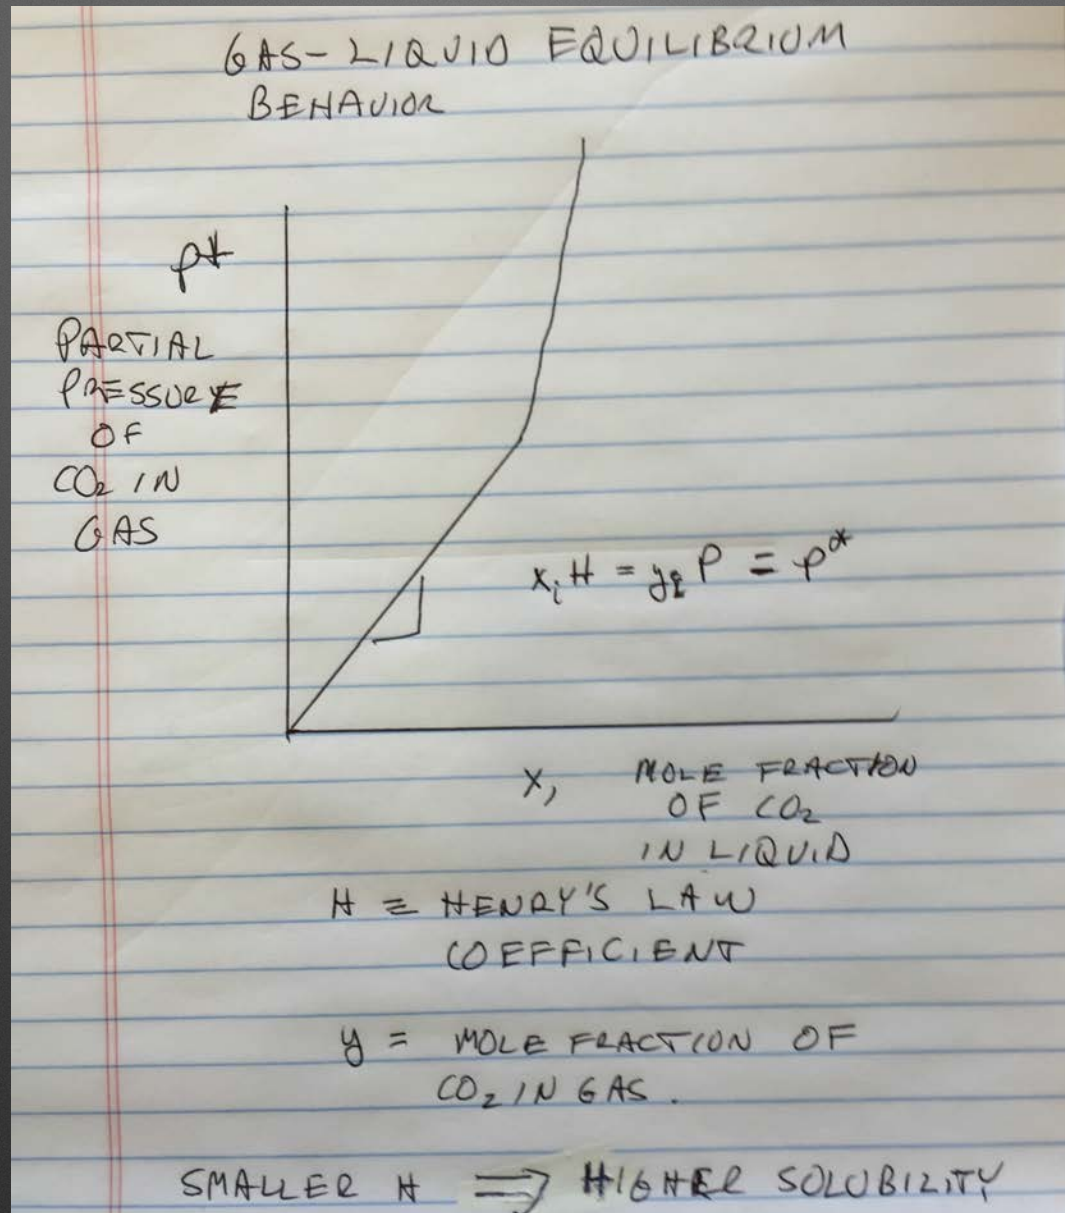 GAS-LIQUID EQUILIBRIUM
BEHAVIOR
p*
PARTIAL
PRESSURE
OF
CO₂ IN
GAS
xᵢH = yᵢP = p*
x, MOLE FRACTION
OF CO₂
IN LIQUID
H ≡ HENRY'S LAW
COEFFICIENT
y = MOLE FRACTION OF
CO₂ IN GAS.
SMALLER H ⇒ HIGHER SOLUBILITY